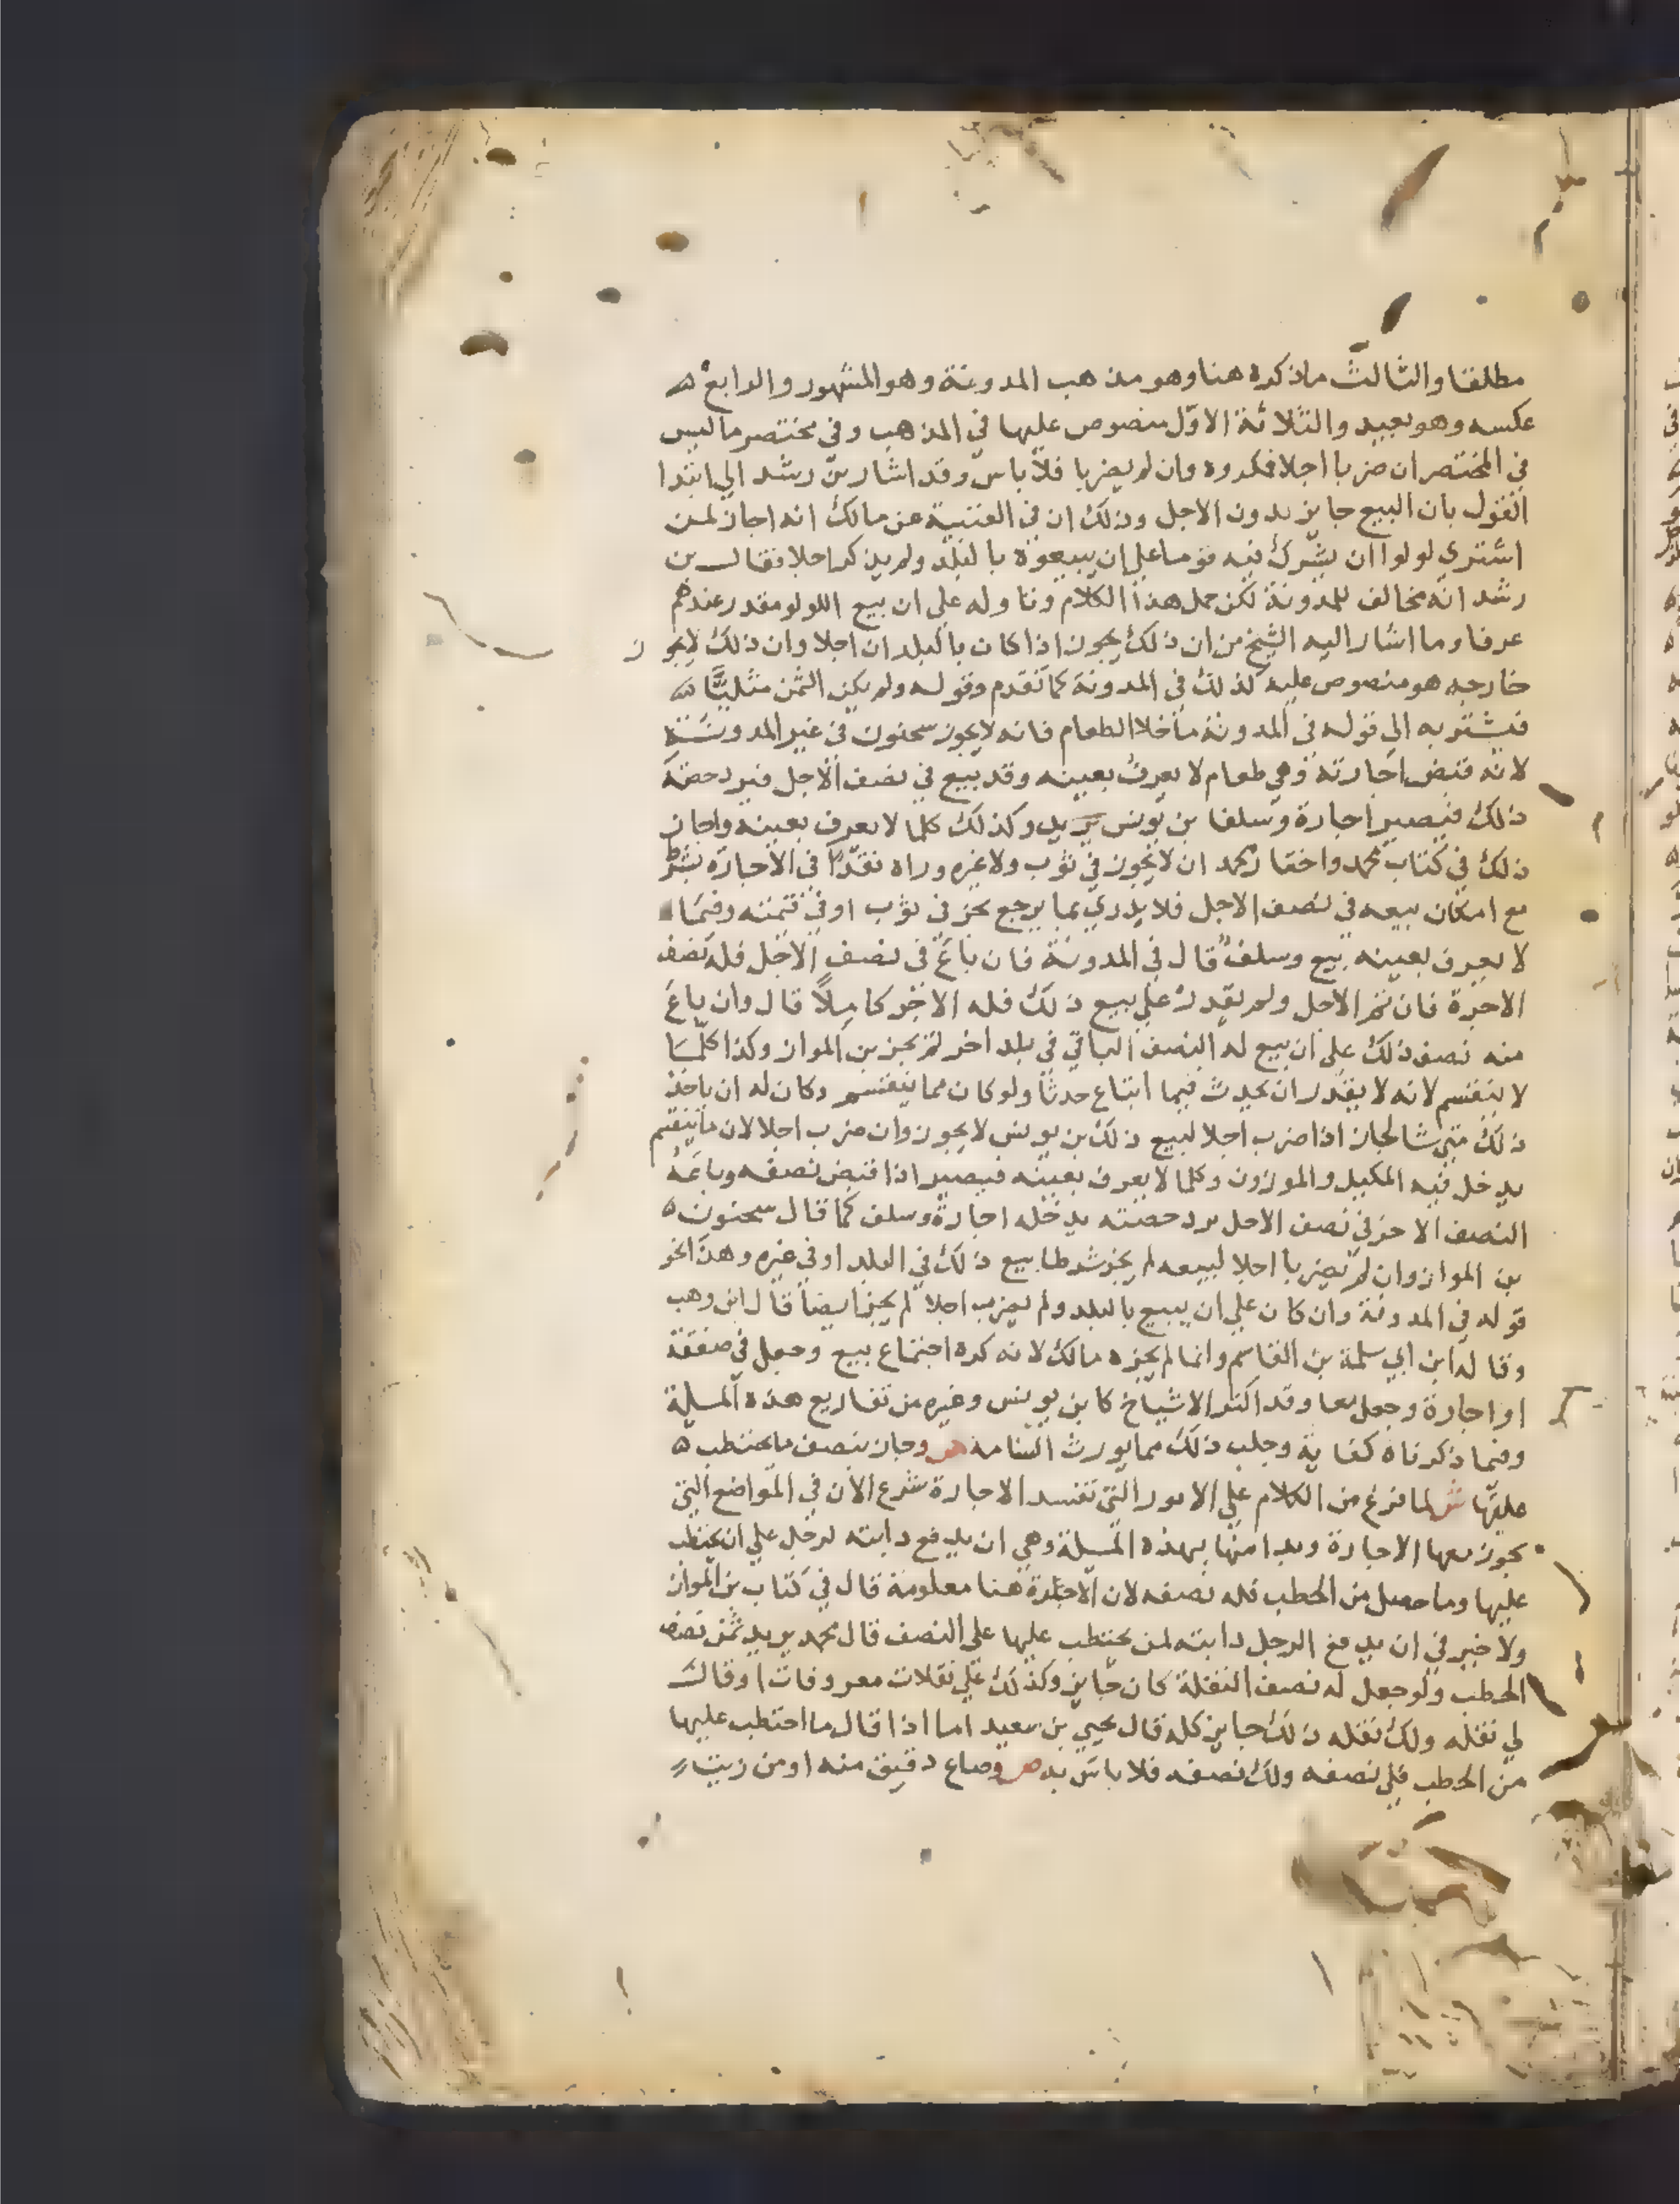 مطلقا والثالث ماذكره هنا وهو مذهب المدونة وهو المشهور والرابع ه
عكسه وهو بعيد والثلاثة الاول منصوص عليها في المذهب وفي مختصر ماليس
في المختصر ان ضربا اجلا فكروه وان لم يضربا فلا باس وقد اشار بن رشد الي ابتدا
القول بان البيع جايز بدون الاجل وذلك ان في العتبية عن مالك انه اجاز لمن
اشتري لولوا ان يشرك فيه قوما علي ان يبيعوه بالبلد ولم يذكر اجلا فقال بن
رشد انه مخالف للمدونة لكن حمل هذا الكلام وتاوله علي ان بيع اللولو مقدر عندهم
عرفا وما اشار اليه الشيخ من ان ذلك يجوز اذا كان بالبلد ان اجلا وان ذلك لايجوز
خارجه هو منصوص عليه كذلك في المدونة كما تقدم وقوله ولم يكن الثمن مثليا ه
فيشتربه الي قوله في المدونة ماخلا الطعام فانه لايجوز سحنون في غير المدونة
لانه قبض اجارته وهي طعام لا يعرف بعينه وقد يبيع في نصف الاجل فيرد حصة
ذلك فيصير اجارة وسلفا بن يونس يريد وكذلك كلما لا يعرف بعينه واجاز
ذلك في كتاب محمد واختار محمد ان لايجوز في ثوب ولا غيره وراه نقدا في الاجارة بشرط
مع امكان بيعه في نصف الاجل فلا يدري بما يرجع بحز في ثوب او في قيمته وفيما
لا يعرف بعينه بيع وسلف قال في المدونة فان باع في نصف الاجل فله نصف
الاجرة فان تم الاجل ولم يقدر علي بيع ذلك فله الاجر كاملا قال وان باع
منه نصف ذلك علي ان يبيع له النصف الباقي في بلد اخر لم يجز بن المواز وكذا كلما
لا ينقسم لانه لا يقدر ان يحدث فيما ابتاع حدثا ولو كان مما ينقسم وكان له ان ياخذ
ذلك متي شا لجاز اذا ضرب اجلا لبيع ذلك بن يونس لا يجوز وان ضرب اجلا لان ماينقسم
يدخل فيه المكيل والموزون وكلما لا يعرف بعينه فيصير اذا قبض نصفه وباعه
النصف الاخر في نصف الاجل يرد حصته يدخله اجارة وسلف كما قال سحنون ه
بن المواز وان لم يضربا اجلا لبيعه لم يجز شرطا بيع ذلك في البلد او في غيره وهذا نحو
قوله في المدونة وان كان علي ان يبيع بالبلد ولم يضرب اجلا لم يجز ايضا قال ابن وهب
وقاله ابن ابي سلمة بن القاسم وانما لم يجزه مالك لانه كره اجتماع بيع وجعل في صفقة
او اجارة وجعل معا وقد اكثر الاشياخ كابن يونس وغيره من تفاريع هذه المسلة
وفيما ذكرناه كفاية وجلب ذلك مما يورث السامة ص وجاز بنصف مايحتطب ه
عليها ش لما فرغ من الكلام علي الامور التي تفسد الاجارة شرع الان في المواضع التي
يجوز معها الاجارة وبدا منها بهذه المسلة وهي ان يدفع دابته لرجل علي ان يحتطب
عليها وما حصل من الحطب فله نصفه لان الاجارة هنا معلومة قال في كتاب بن المواز
ولا خير في ان يدفع الرجل دابته لمن يحتطب عليها علي النصف قال محمد يريد ثمن نصف
الحطب ولو جعل له نصف النقلة كان جايز وكذلك علي نقلات معروفات او قال
لي نقله ولك نقله ذلك جايز كله قال يحيي بن سعيد اما اذا قال ما احتطب عليها
من الحطب فلي نصفه ولك نصفه فلا باس به ص وصاع دقيق منه او من زيت